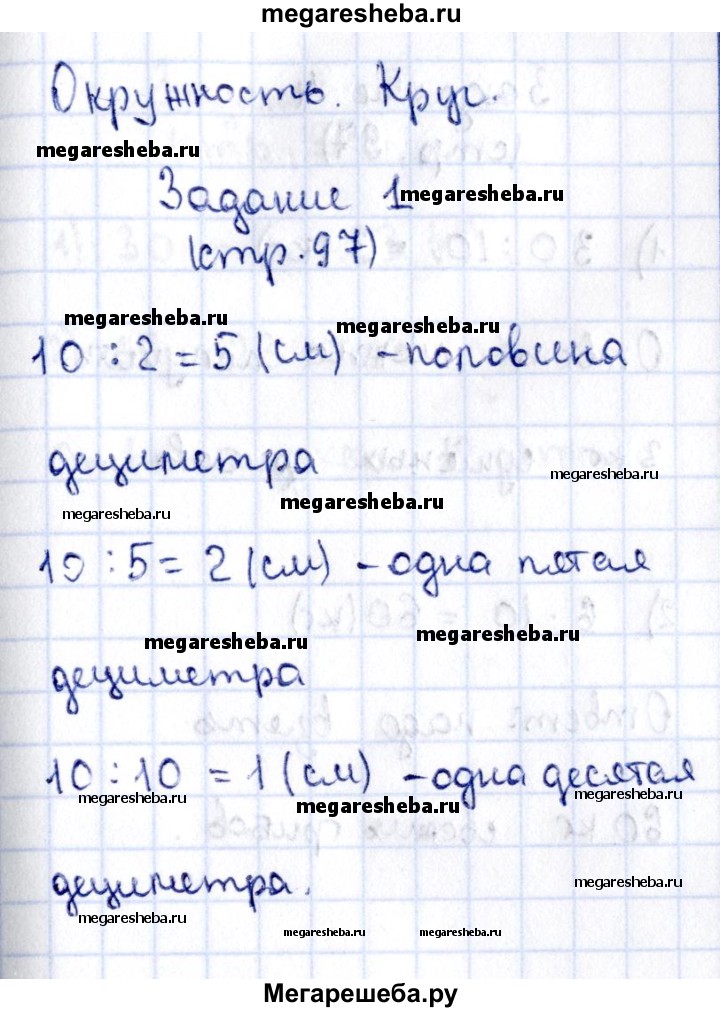 megaresheba.ru
Окружность. Круг.
megaresheba.ru
Задание 1
megaresheba.ru
(стр. 97)
megaresheba.ru
megaresheba.ru
10 : 2 = 5 (см) - половина
дециметра
megaresheba.ru
megaresheba.ru
megaresheba.ru
10 : 5 = 2 (см) - одна пятая
megaresheba.ru
megaresheba.ru
дециметра
10 : 10 = 1 (см) - одна десятая
megaresheba.ru
megaresheba.ru
megaresheba.ru
дециметра.
megaresheba.ru
megaresheba.ru
megaresheba.ru
megaresheba.ru
Мегарешеба.ру